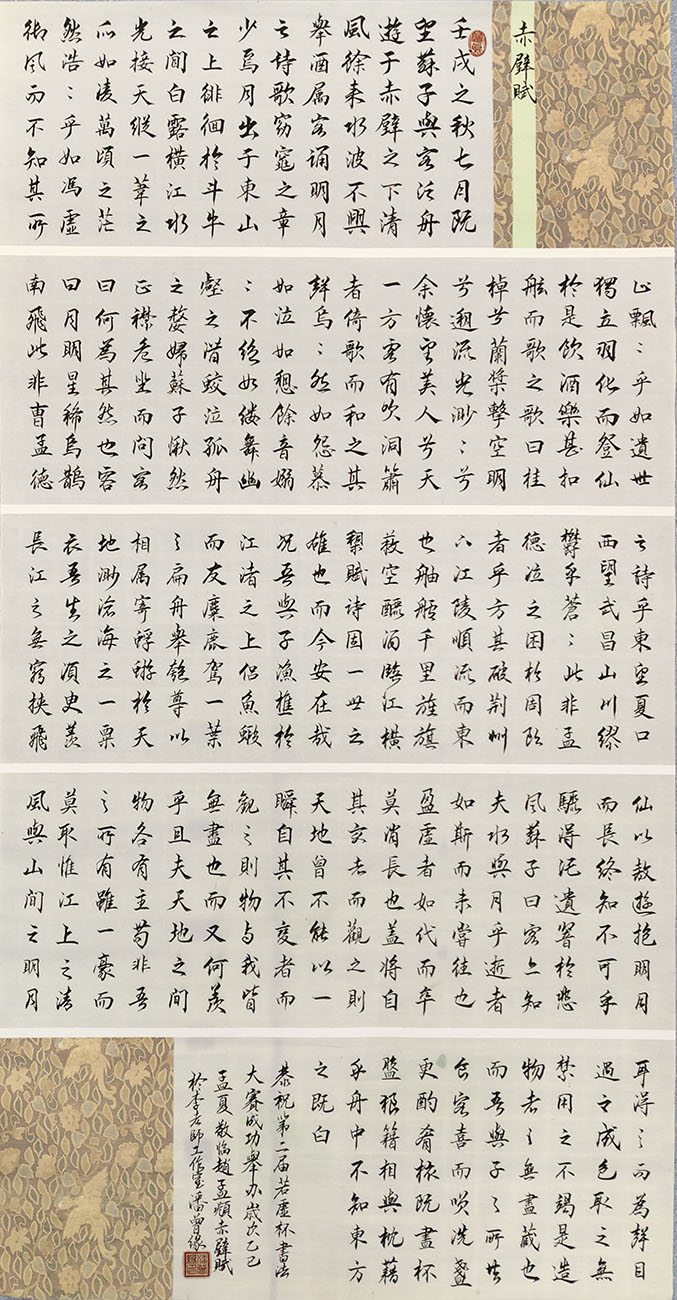 赤壁賦
壬戌之秋七月既
望蘇子與客泛舟
遊于赤壁之下清
風徐来水波不興
舉酒属客誦明月
之詩歌窈窕之章
少焉月出于東山
之上徘徊於斗牛
之間白露横江水
光接天縱一葦之
所如凌萬頃之茫
然浩〻乎如馮虚
御風而不知其所
止飄〻乎如遺世
獨立羽化而登仙
於是飲酒樂甚扣
舷而歌之歌曰桂
棹兮蘭槳擊空明
兮遡流光渺〻兮
余懷望美人兮天
一方客有吹洞簫
者倚歌而和之其
聲烏〻然如怨慕
如泣如愬餘音嫋
〻不絶如縷舞幽
壑之潛蛟泣孤舟
之嫠婦蘇子愀然
正襟危坐而問客
曰何為其然也客
曰月明星稀烏鵲
南飛此非曹孟德
之詩乎東望夏口
西望武昌山川繆
欝乎蒼〻此非孟
德泣之困於周郎
者乎方其破荆州
下江陵順流而東
也舳艫千里旌旗
蔽空釃酒臨江橫
槊賦詩固一世之
雄也而今安在哉
况吾與子漁樵於
江渚之上侣魚鰕
而友麋鹿駕一葉
之扁舟舉匏尊以
相属寄蜉蝣於天
地渺滄海之一粟
哀吾生之須臾羨
長江之無窮挾飛
仙以敖遊抱明月
而長終知不可乎
驟得託遺響於悲
風蘇子曰客亦知
夫水與月乎逝者
如斯而未嘗往也
盈虚者如代而卒
莫消長也蓋將自
其变者而觀之則
天地曾不能以一
瞬自其不变者而
觀之則物与我皆
無盡也而又何羨
乎且夫天地之間
物各有主苟非吾
之所有雖一豪而
莫取惟江上之清
風與山間之明月
耳得之而為聲目
遇之成色取之無
禁用之不竭是造
物者之無盡藏也
而吾與子之所共
食客喜而笑洗盞
更酌肴核既盡杯
盤狼籍相與枕藉
乎舟中不知東方
之既白
恭祝第二届若虚杯書法
大賽成功舉办歲次乙巳
孟夏敬临趙孟頫赤壁賦
於李老師工作室潘曾缘